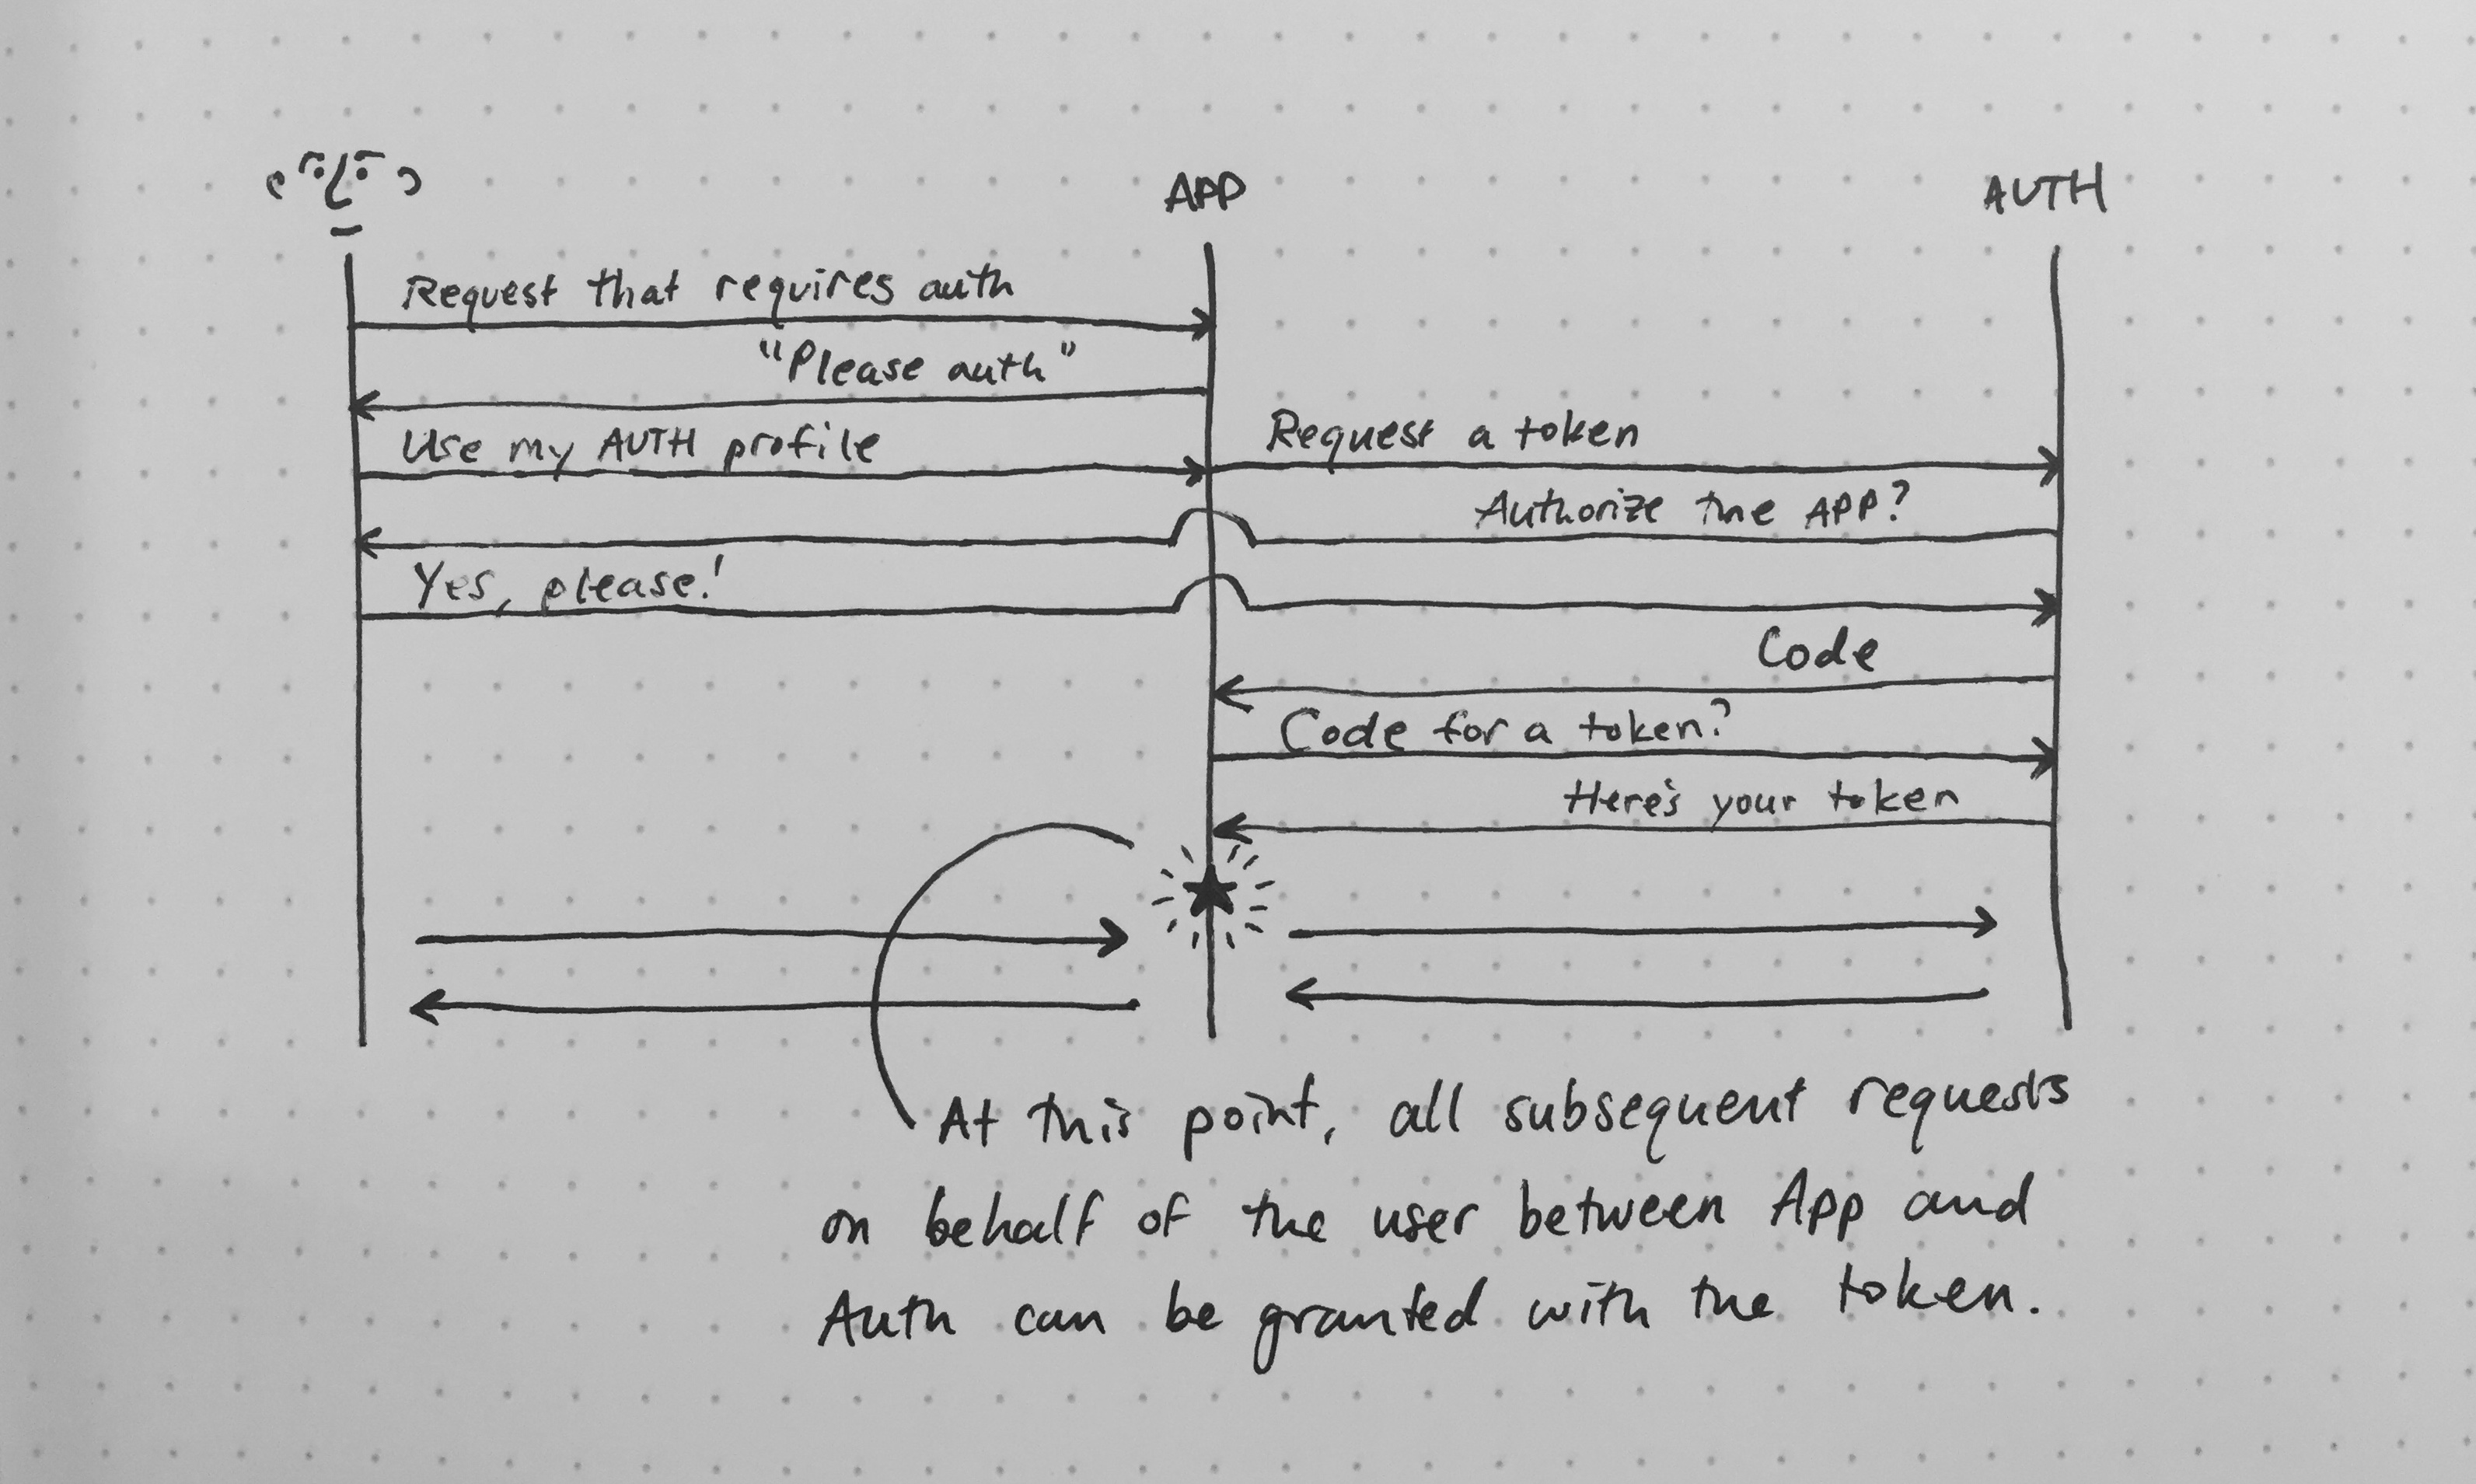 APP
AUTH
Request that requires auth
"Please auth"
Use my AUTH profile
Request a token
Authorize the APP?
Yes, please!
Code
Code for a token?
Here's your token
At this point, all subsequent requests
on behalf of the user between App and
Auth can be granted with the token.